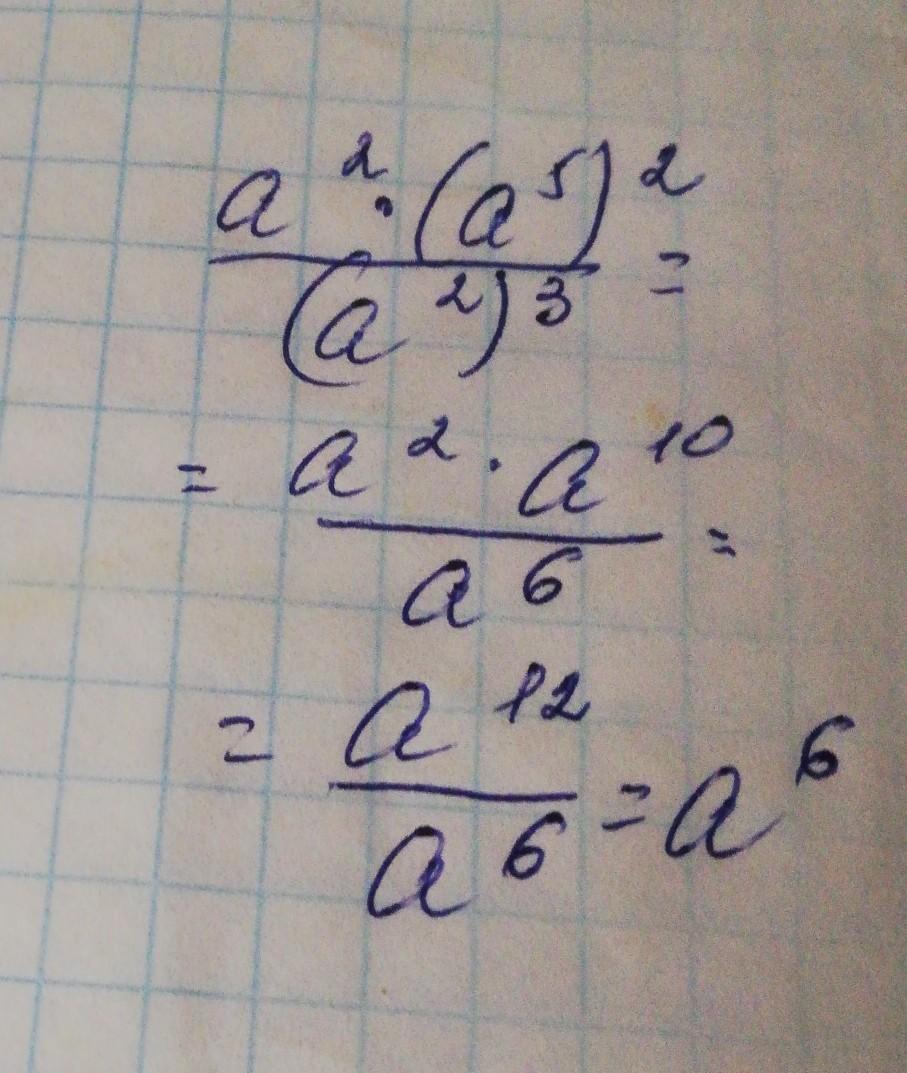 a² · (a⁵)² / (a²)³ =
= a² · a¹⁰ / a⁶ =
= a¹² / a⁶ = a⁶